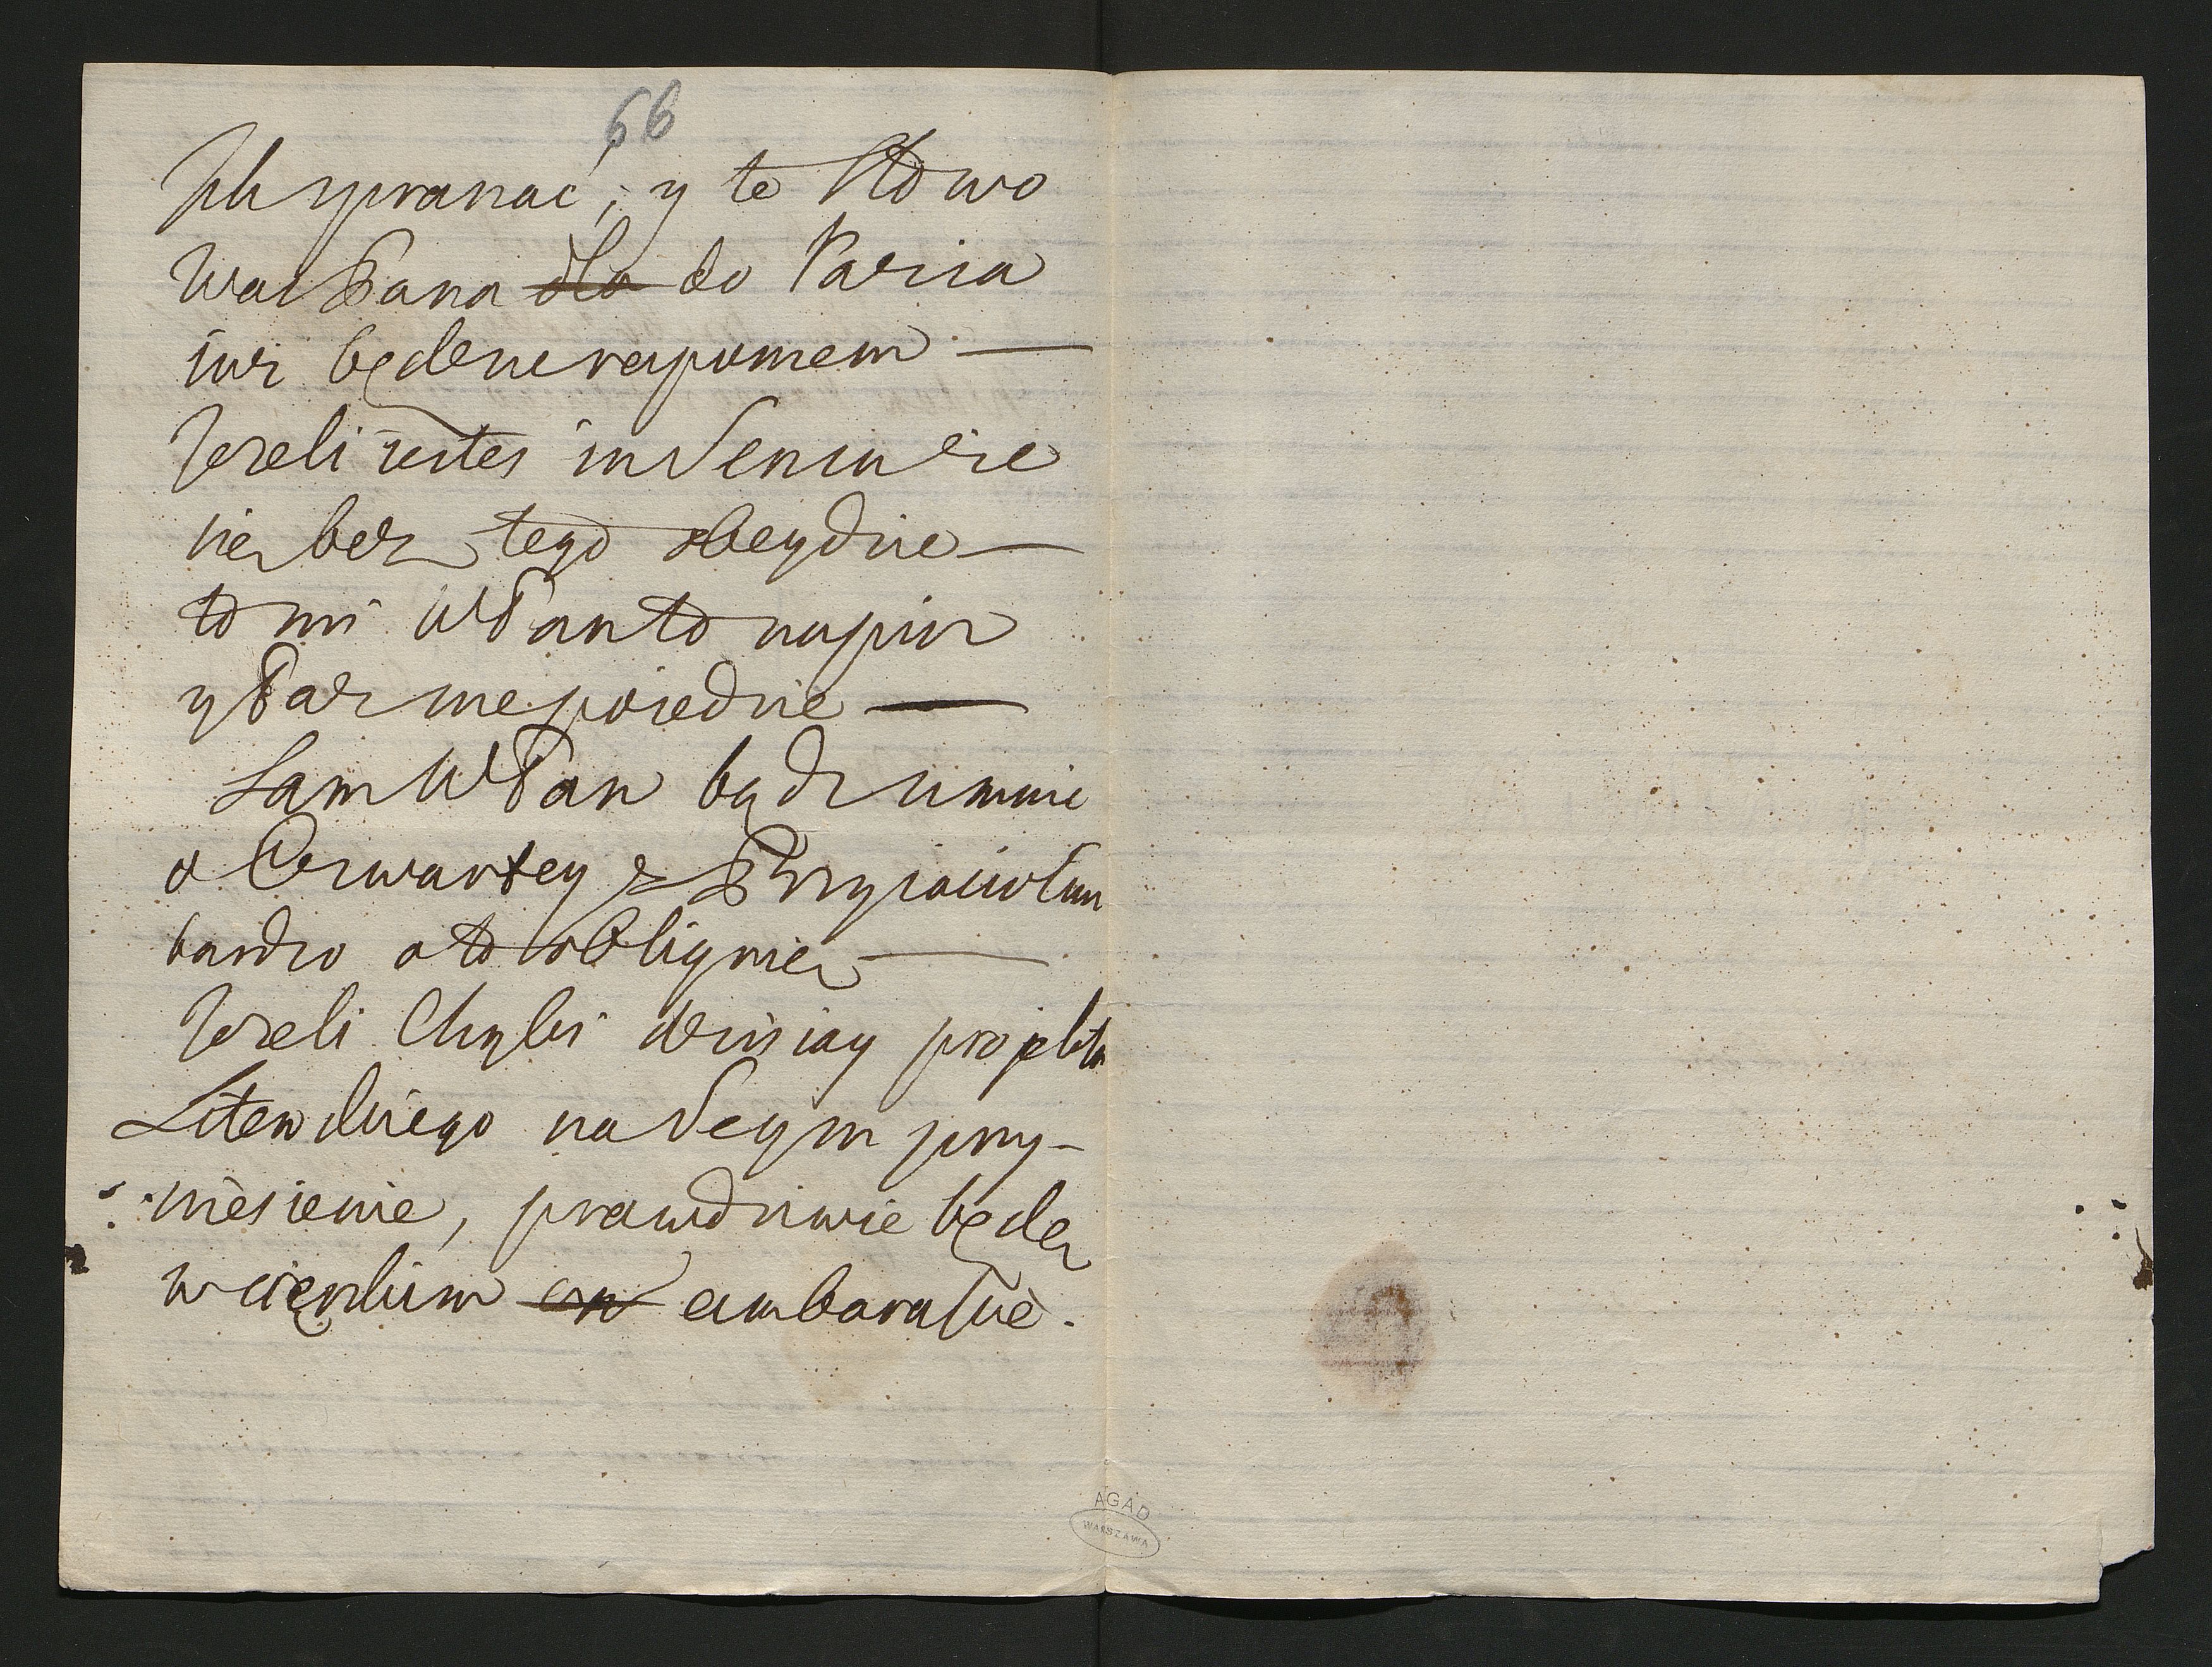 66
Ich sprawnać, y te słowo
WasPana dla do Pazia
iuż będzie respomem —
Jeżeli iestes in Sensu że
się bez tego obeydzie —
to mi WPan to napisz
y Paź nie poiedzie —
Sam WPan bądz u mnie
o Czwartey z Przyiacielem
bardzo o to obliguię —
Jeżeli Chybi dzisiay projekta
Litewskiego na Seym przy-
niesienie, prawdziwie będę
w cięzkim em embarassie.
AGAD
WARSZAWA